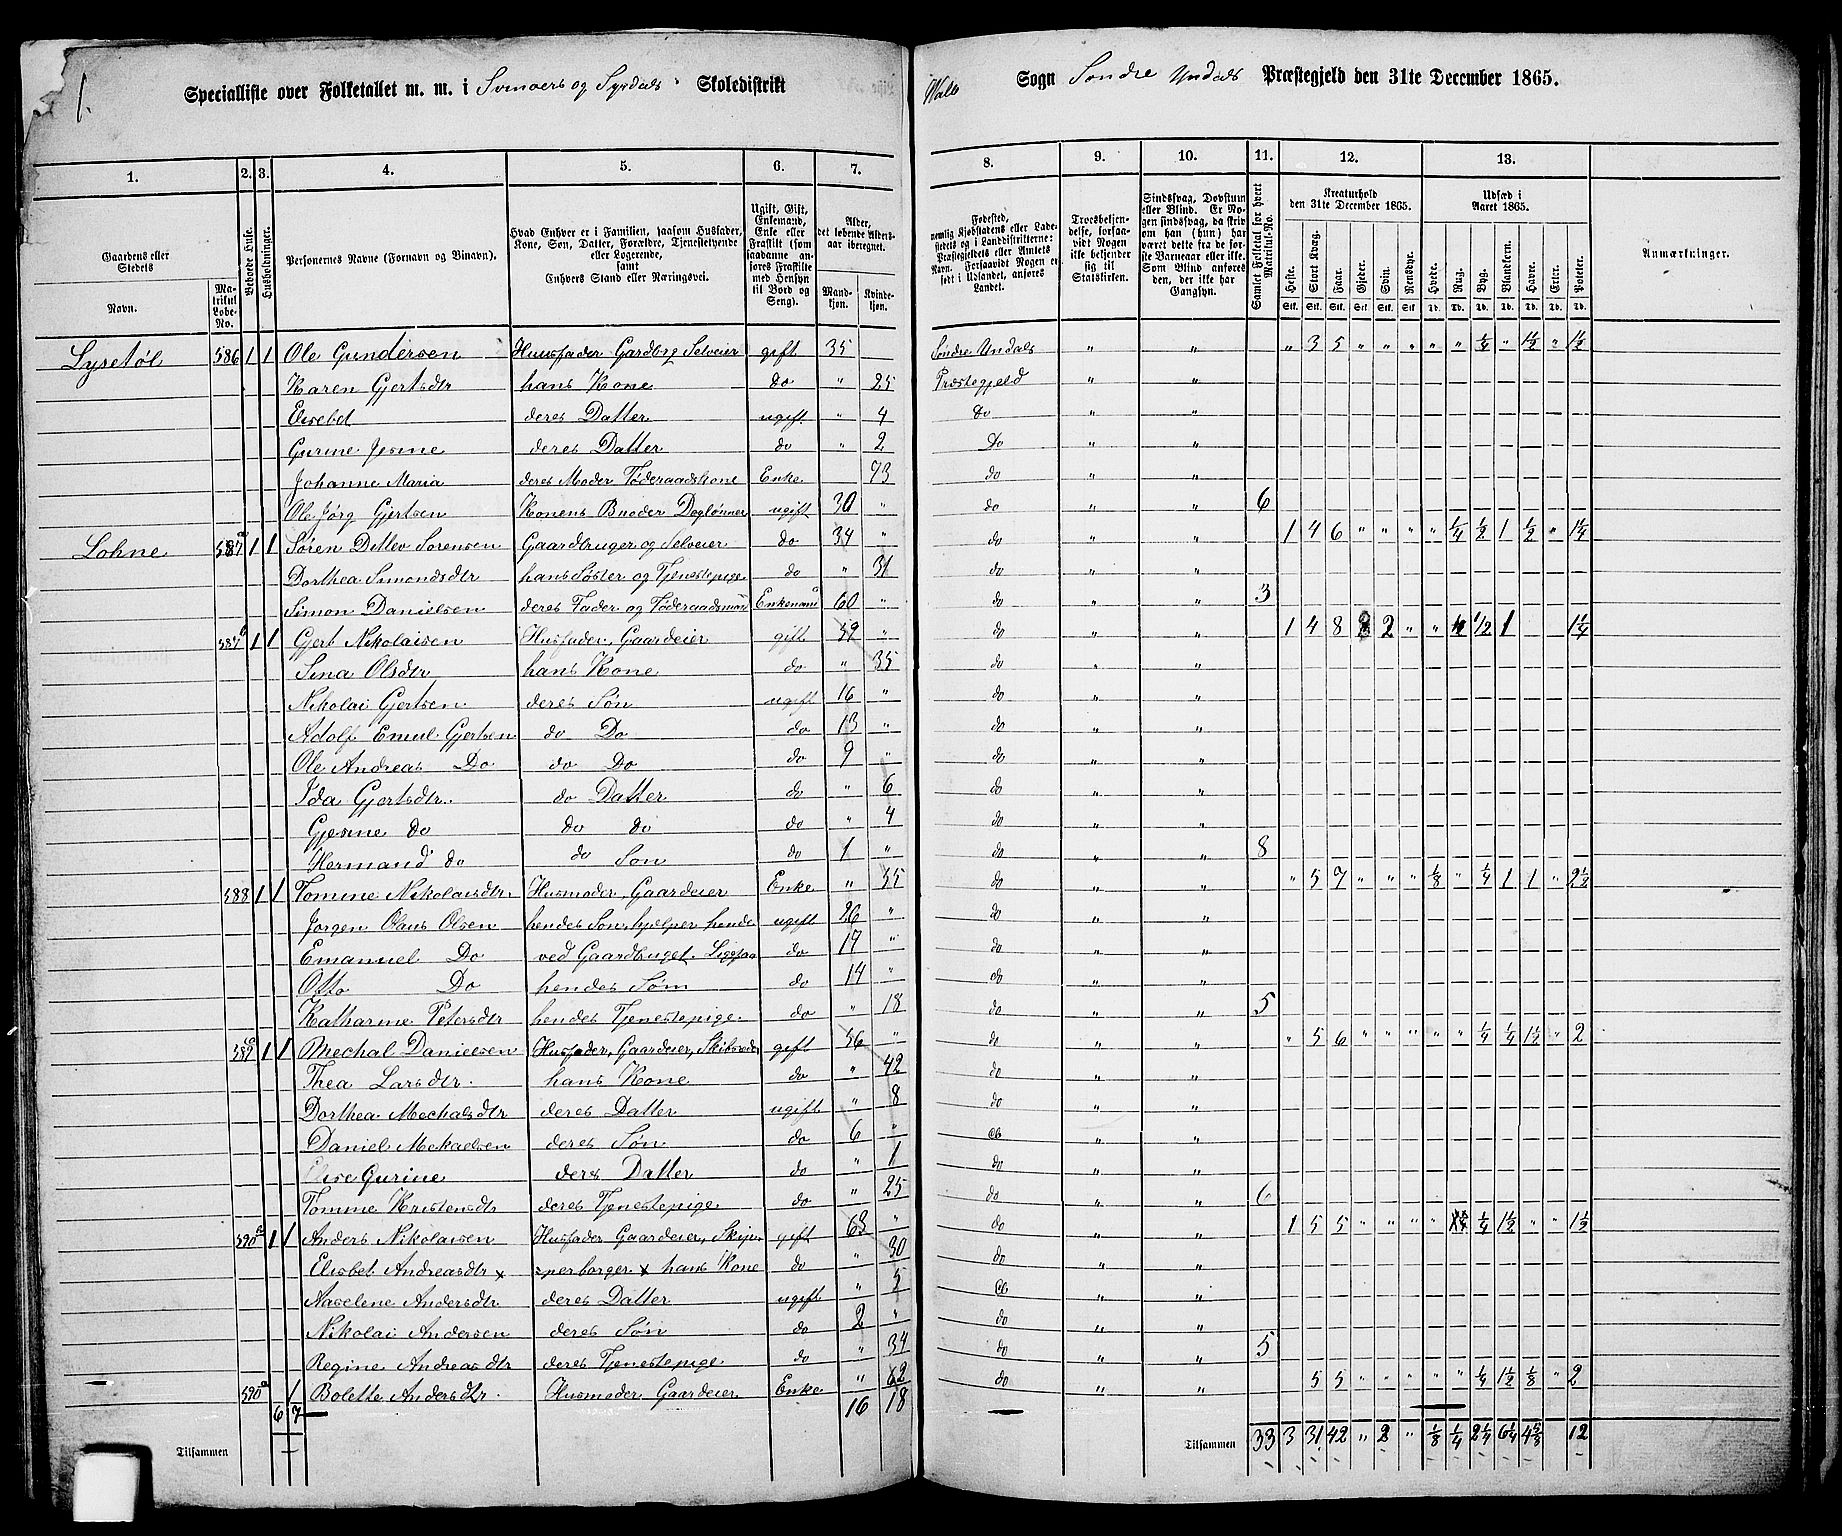 1.
Specialliste over Folketallet m. m. i Svinoers og Syrdals Skoledistrikt
Valle Sogn Søndre Undals Præstegjeld den 31te December 1865.
1. 2. 3. 4. 5. 6. 7. 8. 9. 10. 11. 12. 13.
Gaardens eller Stedets Navn.
Matrikul Løbe-No.
Beboede Huse.
Husholdninger.
Personernes Navne (Fornavn og Binavn).
Hvad Enhver er i Familien, saasom Husfader, Kone, Søn, Datter, Forældre, Tjenestetyende eller Logerende, samt Enhvers Stand eller Næringsvei.
Ugift, Gift, Enkemand, Enke eller Fraskilt (som saadanne anføres Fraskilte med Hensyn til Bord og Seng).
Alder, det løbende Aldersaar iberegnet.
Mandkjøn. Kvindekjøn.
Fødested, nemlig Kjøbstadens eller Ladestedets og i Landdistrikterne: Præstegjeldets eller Amtets Navn. Forsaavidt Nogen er født i Udlandet, anføres Landet.
Troesbekjendelse, forsaavidt Nogen ikke bekjender sig til Statskirken.
Sindssvag, Døvstum eller Blind. Er Nogen sindssvag, da skrives om han (hun) har været dette fra de første Barneaar eller ikke. Som Blind anføres den, der ikke har Gangsyn.
Samlet Folketal for hvert Matrikul-No.
Kreaturhold den 31te December 1865.
Heste. Stort Kvæg. Faar. Gjeder. Svin. Rensdyr.
Udsæd i Aaret 1865.
Hvede. Rug. Byg. Blandkorn. Havre. Erter. Poteter.
Anmærkninger.
Lysetøl 586 1 1 Ole Gundersen Husfader Gardbrg Selveier gift 35 Søndre Undals " " " 3 5 " " " " " 1/4 " 1 1/2 " 1 1/2
Karen Gjertsdtr hans Kone do " 25 Præstegjeld " "
Elisebet deres Datter ugift " 4 do " "
Gurine Jesine deres Datter do " 2 Do " "
Johanne Maria deres Moder Føderaadskone Enke 73 do " "
Ole Jørg Gjertsen Konens Broder Daglønner ugift 30 " do " " 6
Lohne 587 a 1 1 Søren Detlev Sørensen Gaardbruger og Selveier do 34 " do " " 1 4 6 " " " " 1/4 1/2 1 1/2 " 1 1/4
Dorthea Simonsdtr hans Søster og Tjenestepige do " 31 do " "
Simon Danielsen deres Fader og Føderaadsman Enkeman 60 " do " " 3
587 b 1 1 Gjert Nikolaisen Husfader, Gaardeier gift 59 " do " " 1 4 8 2 " " 1/2 1 1 1/4
Sina Olsdtr hans Kone do " 35 do " "
Nikolai Gjertsen deres Søn ugift 16 " do " "
Adolf Emil Gjertsen do Do do 13 " do " "
Ole Andreas Do do Do do 9 " do " "
Ida Gjertsdtr. do Datter do " 6 do " "
Gjesine do do do do " 4 do " "
Hermand do do Søn do 1 " do " " 8
588 1 1 Tomine Nikolaisdtr. Husmoder, Gaardeier Enke " 55 do " " " 5 7 " " " 1/8 " 1/4 1 1 " 2 1/2
Jorgen Olaus Olsen hendes Søn, hjelper hende ugift 26 " do " "
Emanuel Do ved Gaardbruget. Ligesaa do 17 " do " "
Otto Do hendes Søn do 14 " do " "
Katharine Petersdtr hendes Tjenestepige do " 18 do " " 5
589 1 1 Mechal Danielsen Husfader, Gaardeier, Skibsreder gift 56 " do " " " 5 6 " " " " " 1/4 1/4 1 1/2 " 2
Thea Larsdtr. hans Kone do " 42 do " "
Dorthea Mechalsdtr deres Datter ugift " 8 do " "
Daniel Mekaelsen deres Søn do 6 " do " "
Elise Gurine deres Datter do " 1 do " "
Tomine Kristensdtr deres Tjenestepige do " 25 do " " 6
590 1 1 Anders Nikolaisen Husfader Gaardeier, Skip- gift 68 " do " " 1 5 5 " " " " 1/4 1/4 1 1/2 " " 1 1/2
Elisbet Andreasdtr x sperborger x hans Kone do " 30 do " "
Naselene Andersdtr deres Datter ugift " 5 do " "
Nikolai Andersen deres Søn do 2 " do " "
Regine Andreasdtr deres Tjenestepige do " 34 do " " 5
590 1 Bolette Andersdtr. Husmoder Gaardeier Enke " 62 do " " 5 5 " " " " " 1/4 1 1/2 1/8 " 2
6 7 16 18
Tilsammen
Tilsammen 33 3 31 42 " 2 " 1/8 1/4 2 1/4 6 1/4 4 5/8 12